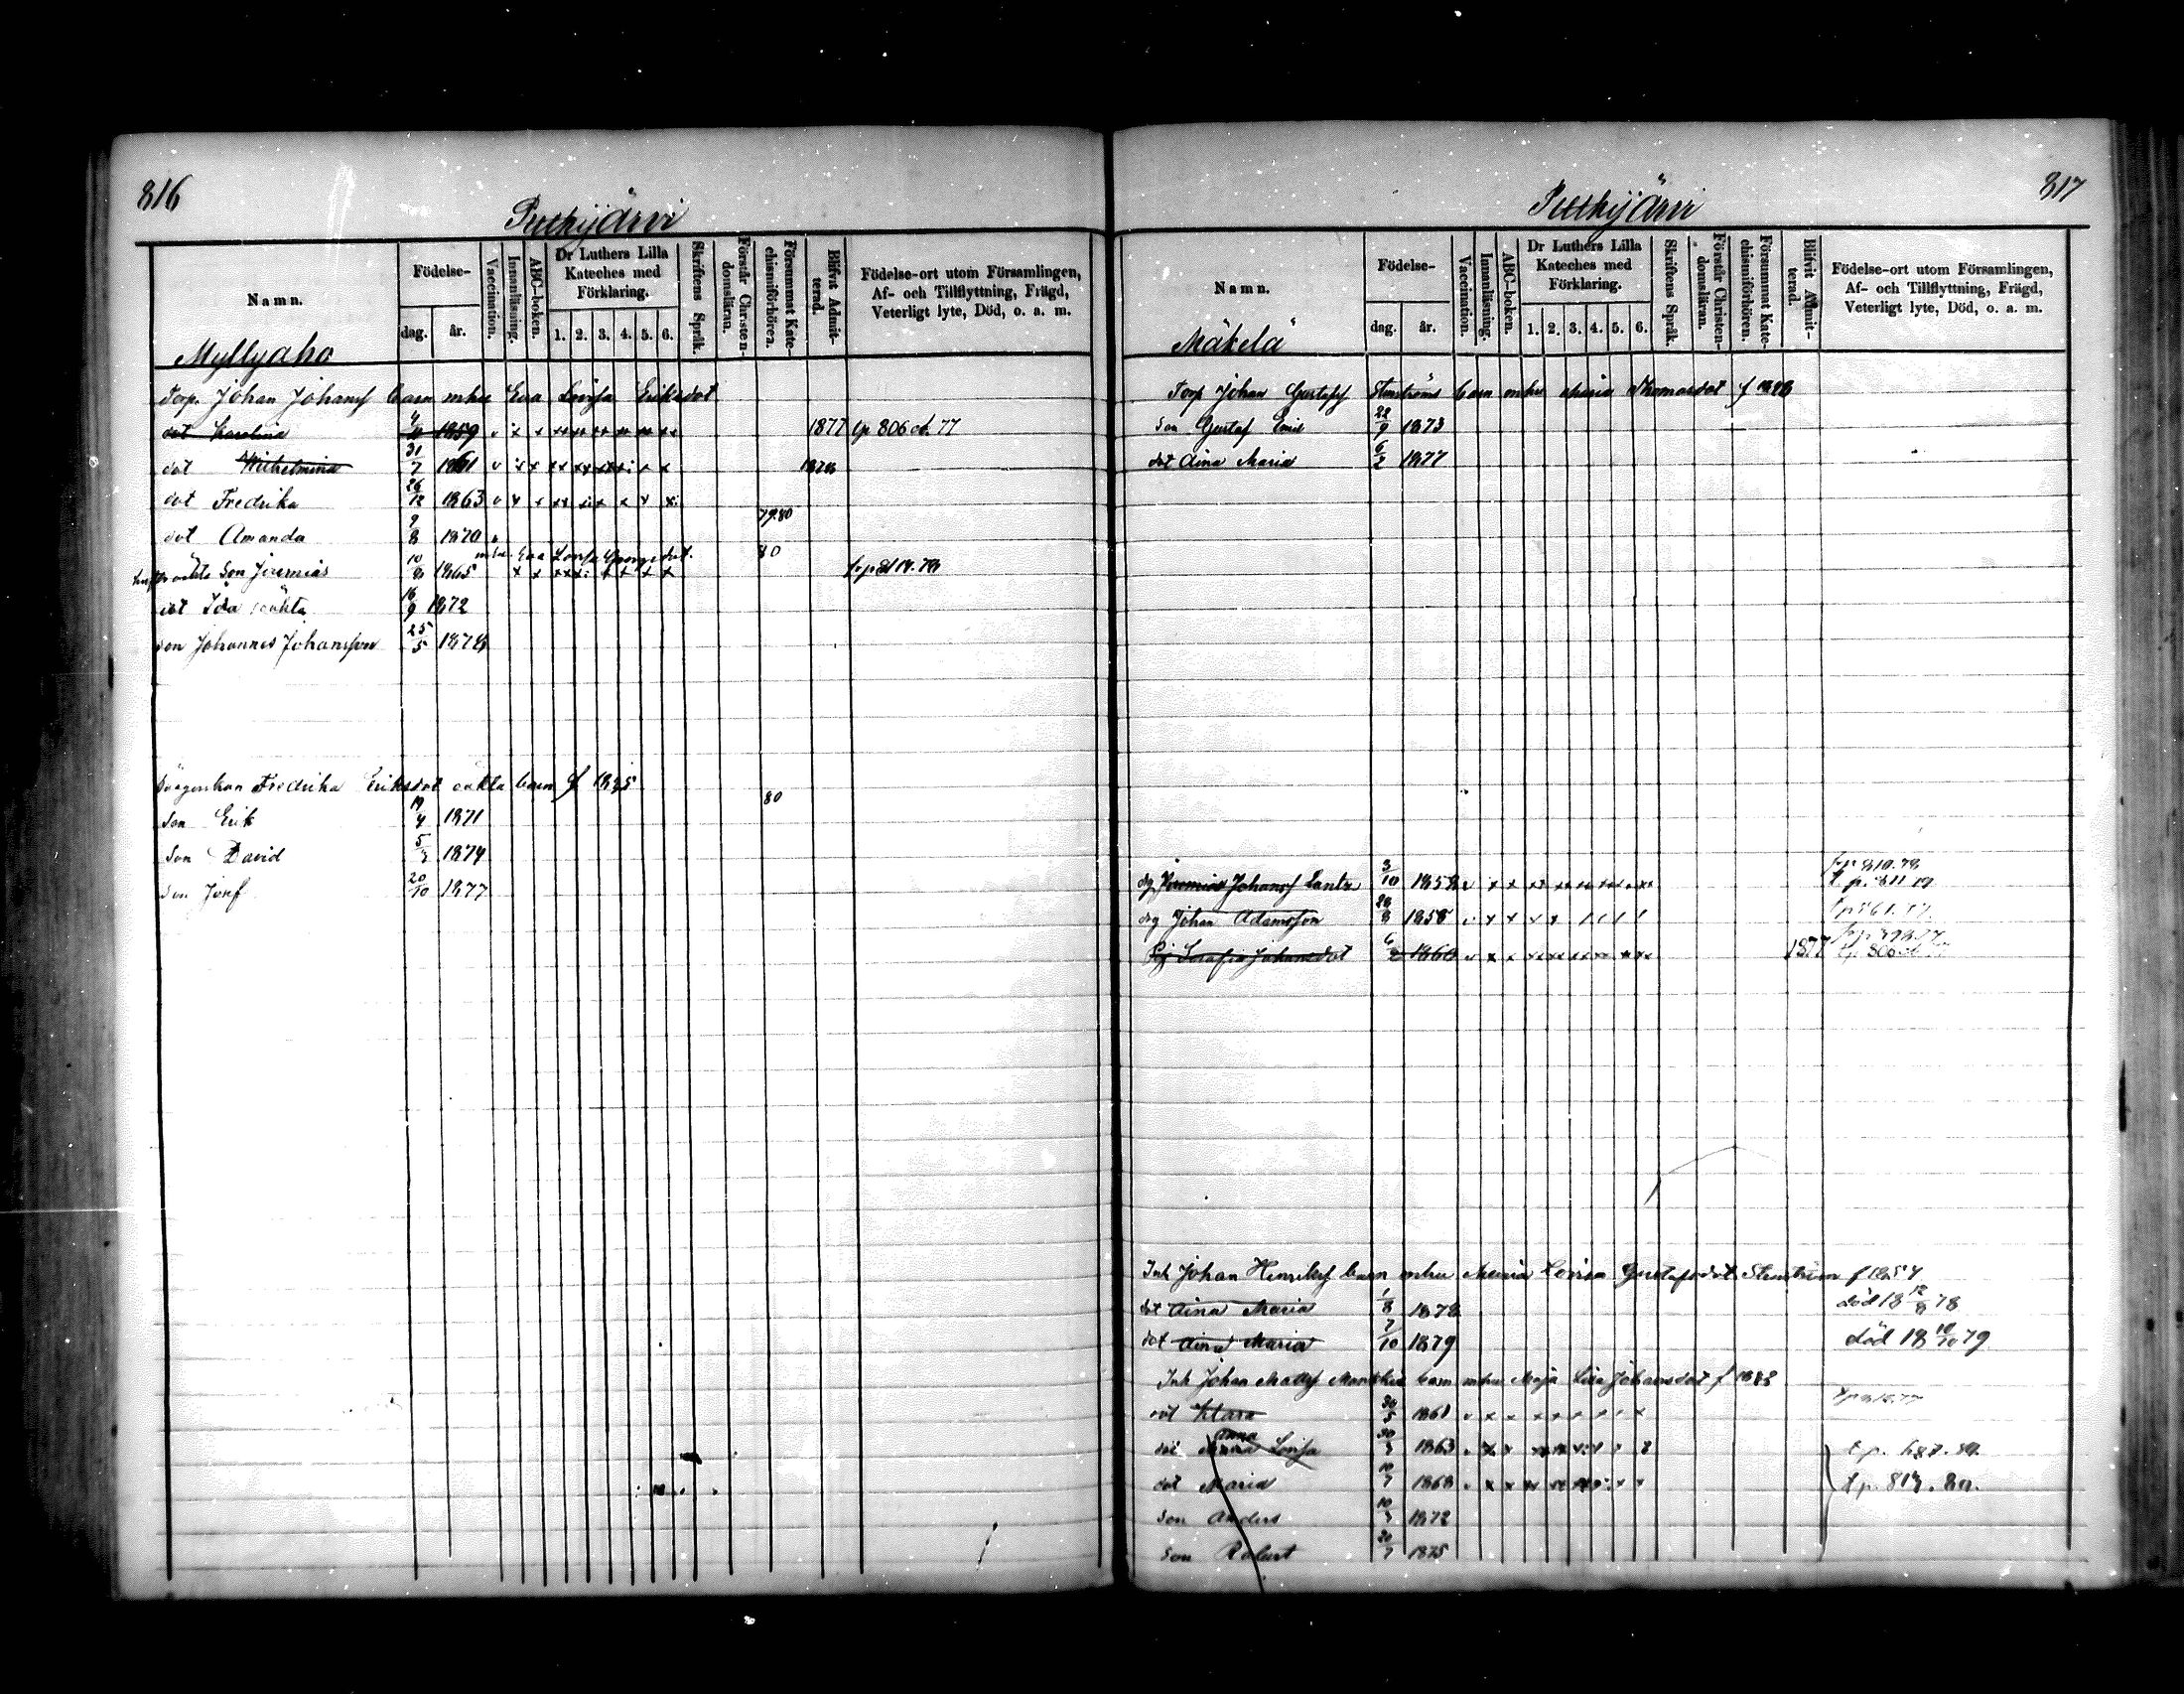 816
Putkijärvi
Namn.
Födelse-
dag.
år.
Vaccination.
Innanläsning.
ABC-boken.
Dr Luthers Lilla
Kateches med
Förklaring.
1. 2. 3. 4. 5. 6.
Skriftens Språk.
Förstår Christen-
domsläran.
Försummat Kate-
chismiförhören.
Blifvit Admit-
terad.
Födelse-ort utom Församlingen,
Af- och Tillflyttning, Frägd,
Veterligt lyte, Död, o. a. m.
Myllyaho
Torp. Johan Johanss barn mhu Eva Lovisa Eriksdot
dot Karolina 1859 v 1877 tp 806 d. 77
dot Wilhelmina 31/7 1861 v 1878
dot Fredrika 26/12 1863 v 79.80
dot Amanda 9/8 1870 v
mhu Eva Lovisa Georgsdot. 80
oäkta Son Jeremias 10/8 1865
dot Ida oäkta 16/9 1872
son Johannes Johansson 25/5 1878
Fredrika Eriksdot oäkta barn f 1835
son Erik 19/4 1871 80
son David 1874
son Josef 20/10 1877
817
Putkijärvi
Namn.
Födelse-
dag.
år.
Vaccination.
Innanläsning.
ABC-boken.
Dr Luthers Lilla
Kateches med
Förklaring.
1. 2. 3. 4. 5. 6.
Skriftens Språk.
Förstår Christen-
domsläran.
Försummat Kate-
chismiförhören.
Blifvit Admit-
terad.
Födelse-ort utom Församlingen,
Af- och Tillflyttning, Frägd,
Veterligt lyte, Död, o. a. m.
Mäkelä
Torp Johan Gustafss Stenströms barn mhu Maria Thomasdot
son Gustaf Emil 22/9 1873
dot Aina Maria 6/2 1877
dg Jeremias Johanss Lantz 3/10 1858
dg Johan Adamsson 28/8 1858
Pig Serafia Johansdot 1860 1877
Inh Johan Henrikss barn mhu Maria Lovisa Gustafsdot Stenström f 1854
dot Aina Maria 1/8 1878 död 18 12/8 78
dot Aina Maria 7/10 1879 död 18 10/10 79
Inh Johan Mattss barn mhu Maja Lisa Johansdot
dot Klara 30/5 1861
dot Anna Lovisa 1863 t p. 687.
dot Maria 10/7 1868 t p. 817. 80.
son Anders 1872
son Robert 20/7 1875